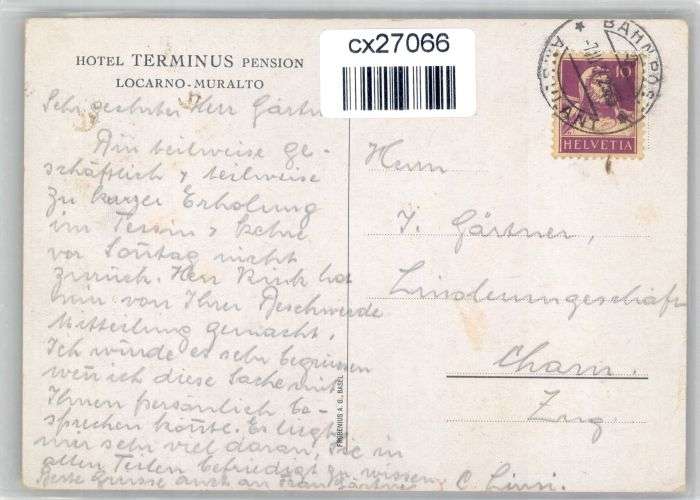 cx27066
HOTEL TERMINUS PENSION
LOCARNO-MURALTO
Sehr geehrter Herr Gärtn
Bin teilweise ge-
schäftlich & teilweise
zu kurzer Erholung
im Tessin & kehre
vor Sontag nicht
zurück. Herr Rink hat
mir von Ihrer Beschwerde
Mitteilung gemacht.
Ich würde es sehr begrüssen
wen ich diese Sache mit
Ihnen persönlich be-
sprechen könte. Es liegt
mir sehr viel daran, Sie in
allen Teilen befriedigt zu wissen.
Beste Grüsse auch an Frau Gärtner
BAHNPOST
AMBULANT
10
HELVETIA
Herrn
J. Gärtner,
Cham.
Zug
FROBENIUS A. G., BASEL